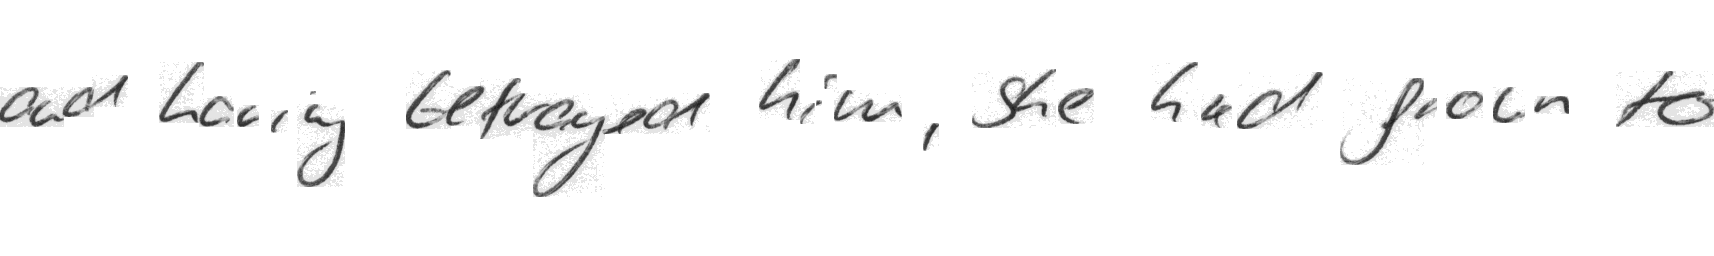 and having betrayed him, she had grown to